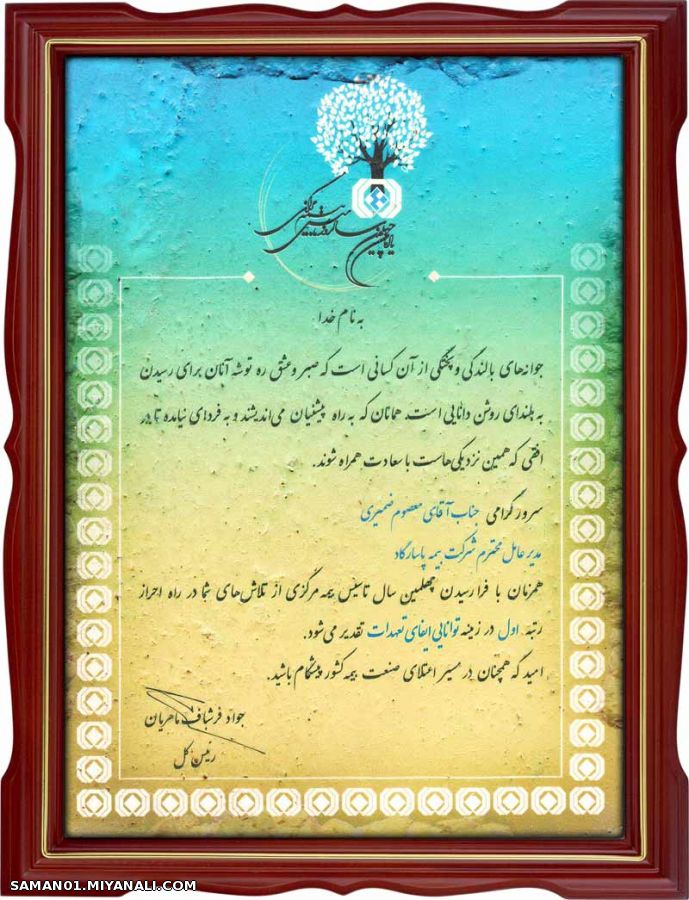 به نام خدا
جوانه‌های بالندگی و پختگی از آن کسانی است که صبر و عشق ره توشه آنان برای رسیدن
به بلندای روشن دانایی است. همانان که به راه پیشنیان می‌اندیشند و به فردای نیامده تا در
افقی که همین نزدیکی‌هاست با سعادت همراه شوند.
سرور گرامی جناب آقای معصوم ضمیری
مدیر عامل محترم شرکت بیمه پاسارگاد
همزمان با فرا رسیدن چهلمین سال تاسیس بیمه مرکزی از تلاش‌های شما در راه احراز
رتبه اول در زمینه توانایی ایفای تعهدات تقدیر می‌شود.
امید که همچنان در مسیر اعتلای صنعت بیمه کشور پیشگام باشید.
جواد فرشباف ماهریان
رئیس کل
SAMAN01.MIYANALI.COM